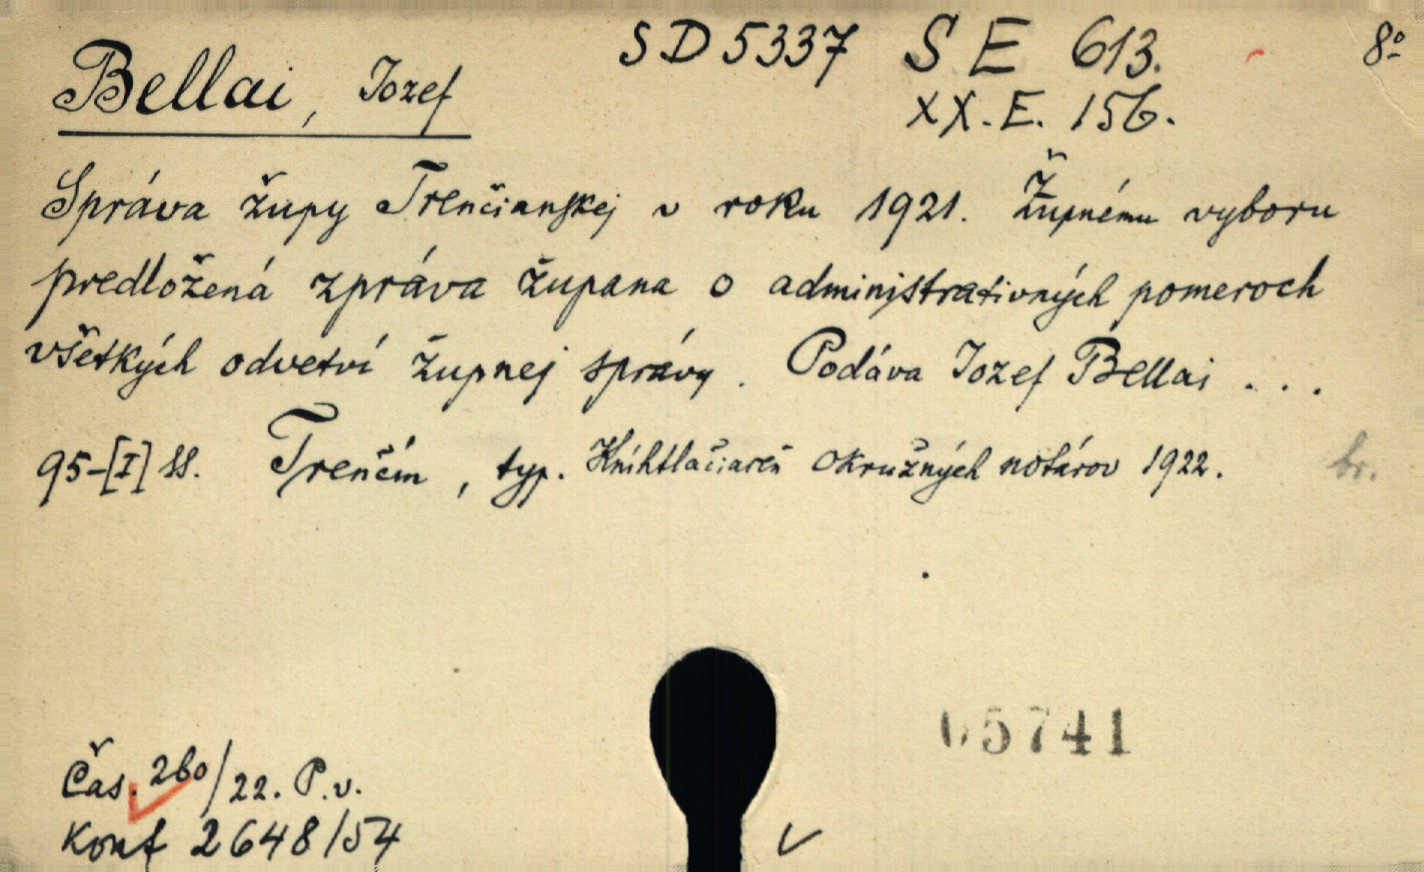 SD 5337 SE 613. 8º
Bellai, Jozef XX.E. 156.
Správa župy Trenčianskej v roku 1921. Župnému vyboru
predložená zpráva župana o administrativných pomeroch
všetkých odvetví župnej správy. Podáva Jozef Bellai ...
95-[I] ss. Trenčín, typ. Kníhtlačiareň okružných notárov 1922. br.
05741
Čas. 260/22. P.v.
Konf 2648/54